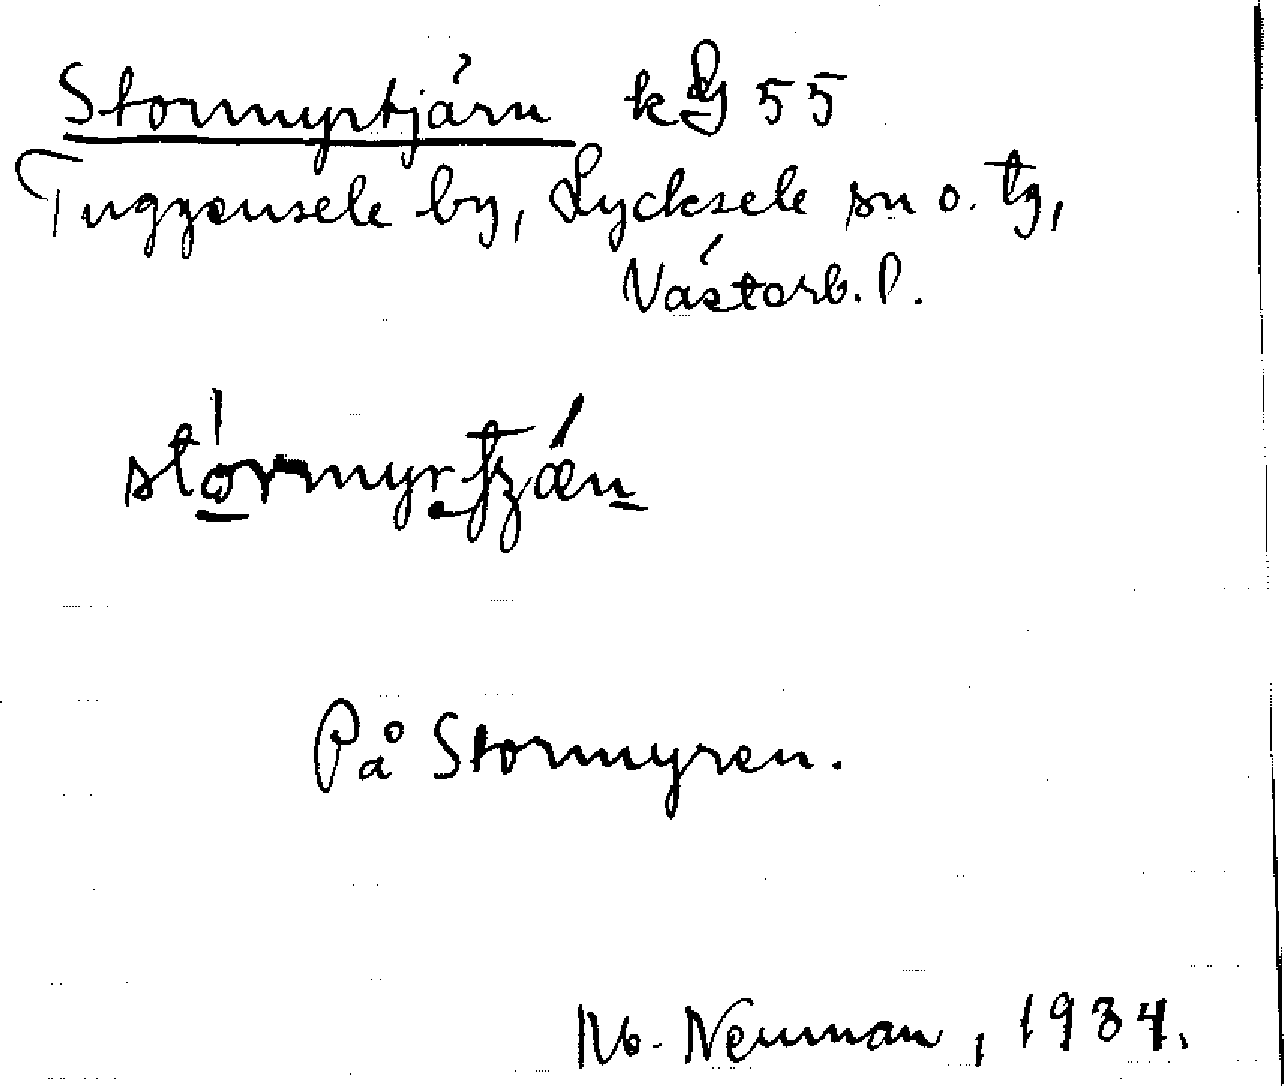 Stormyrtjärn k 55
Tuggensele by, Lycksele sn o. tg,
Västerb. l.
På Stormyren.
Neuman, 1934.